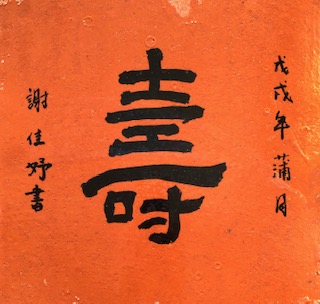 戊戌年蒲月
壽
謝佳妤書